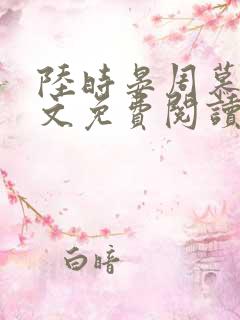 陸時晏周慕
文免費閱讀
白暗